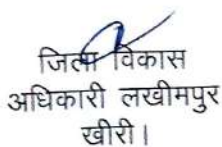 जिला विकास
अधिकारी लखीमपुर
खीरी।